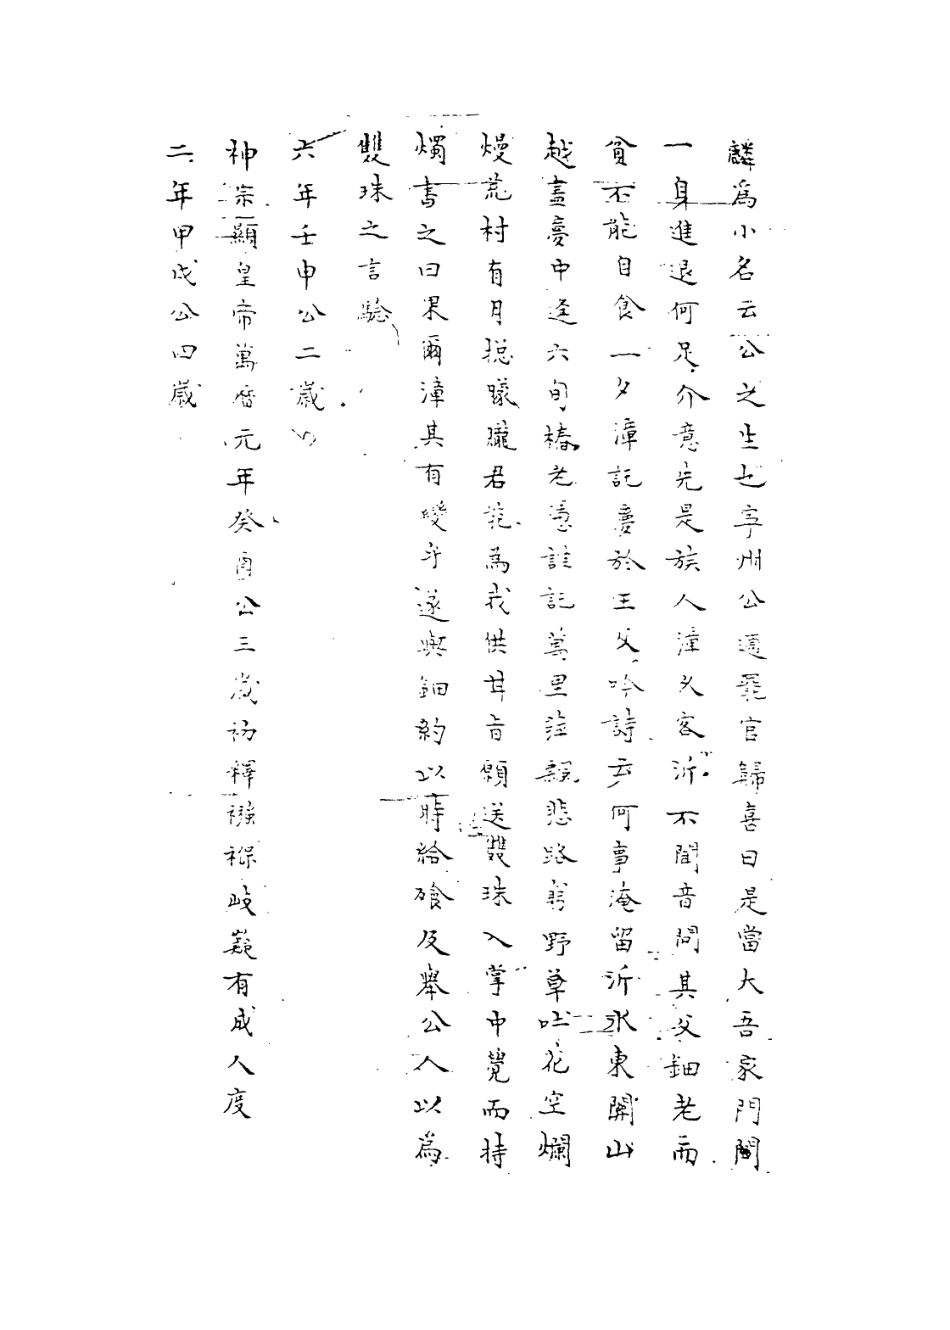 麟爲小名云公之生也字州公適罷官歸喜曰是當大吾家門閭
一身進退何足介意先是族人漳久客沂不聞音問其父鈿老而
貧不能自食一夕漳託夢於王父吟詩云何事淹留沂水東關山
越盡夢中逢六旬椿老憑誰託萬里萍飄悲路窮野草吐花空爛
熳荒村有月挹曚曨君能爲我供甘旨願送雙珠入掌中覺而持
燭書之曰果爾漳其有變乎遂與鈿約以時給飱及舉公人以爲
雙珠之言驗
六年壬申公二歲
神宗顯皇帝萬曆元年癸酉公三歲初釋襁褓岐嶷有成人度
二年甲戌公四歲